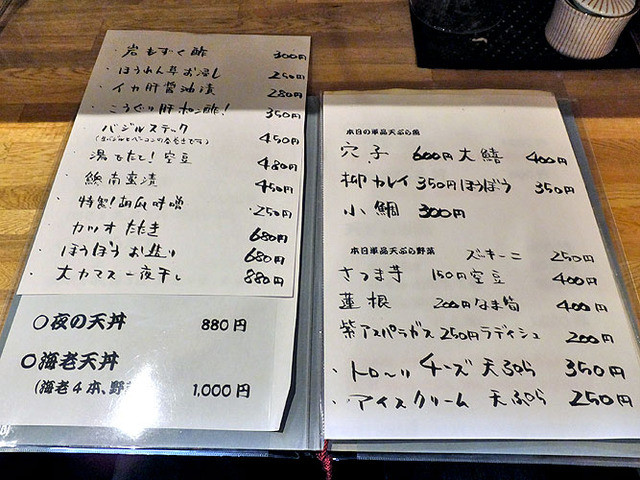 ・岩もずく酢 300円
・ほうれん草お浸し 250円
・イカ肝醤油漬 280円
・こうぐり肝ポン酢! 350円
バジルステック 450円
・湯でたて!空豆 480円
・総南蛮漬 450円
・特製!胡瓜味噌 250円
・カツオたたき 680円
・ほうぼうお造り 680円
・大カマス一夜干し 880円
○夜の天丼 880円
○海老天丼
(海老4本、野 1,000円
本日の単品天ぷら魚
穴子 600円 大鱚 400円
柳カレイ 350円 ほうぼう 350円
小鯛 300円
本日単品天ぷら野菜 ズッキーニ 250円
さつま芋 150円 空豆 400円
蓮根 200円 なま筍 400円
紫アスパラガス 250円 ラディシュ 200円
・トローリチーズ天ぷら 350円
・アイスクリーム天ぷら 250円